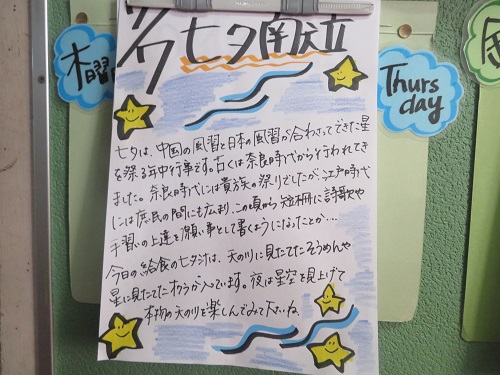 7/7 七夕献立
木曜
Thurs
day
金
七夕は、中国の風習と日本の風習が合わさってできた星
を祭る年中行事です。古くは奈良時代から行われてき
ました。奈良時代には貴族の祭りでしたが、江戸時代
には庶民の間にも広まり、この頃から短冊に詩歌や
手習いの上達を願い事として書くようになったとか…
今日の給食の七夕汁は、天の川に見たてたそうめんや
星に見たてたオクラが入っています。夜は星空を見上げて
本物の天の川を楽しんでみて下さいね